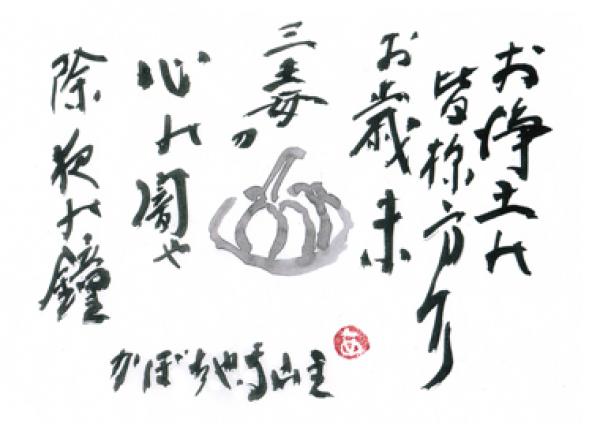 お浄土の
皆様方より
お歳末
三毒の
心の闇や
除夜の鐘
かぼちゃ寺山主